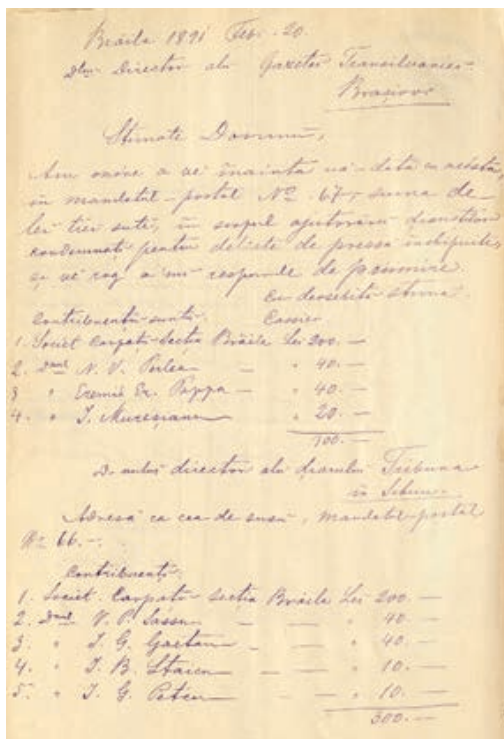 Brăila 1891 Feb. 20.
Dlui Director alu Gazetei Transilvaniei
Brașiovu
Stimate Domnule,
Am onóre a ve înainta uă-dată cu acésta,
în mandatul-postal Nº 67, suma de
lei trei sute, în scopul ajutorarei
condemnați pentru delicte de pressă
și vĕ rog a mi responde de primire.
Cu deosebită stimă
Cassier
Contribuenti sunt:
1. Societ. Carpați-Secția Brăila Lei 200. —
2. Dnul N. V. Perlea — " 40. —
3 " Eremie Er. Pappa — " 40. —
4. " I. Mureșianu — " 20. —
300. —
D. director alu diarului Tribuna
in Sibiiu
Adresă ca cea de susu, mandatul-postal
Nº 66. —
Contribuenți.
1. Societ. Carpați-Secția Brăila Lei 200. —
2. Dnul V. P. Sassu — — " 40. —
3. " I. G. Gaetan — — " 40. —
4. " I. B. Staicu — — " 10. —
5. " I. G. Petcu — — " 10. —
300. —